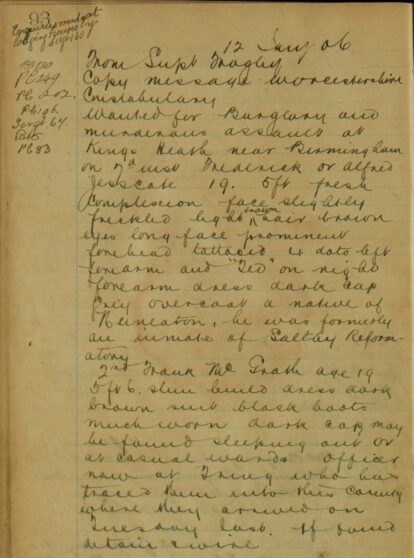 93
Enquiries made at
lodging houses by
Sergt 30
PC 180
PC 249
PC 202.
PC 196.
Sergt 64
PC 83
12 Jany 06
From Supt Fragley
Copy message Worcestershire
Constabulary
Wanted for Burglary and
murderous assault at
Kings Heath near Birmingham
on 7th inst Frederick or Alfred
Jesscote 19. 5ft fresh
Complexion face slightly
freckled light brown hair brown
eyes long face prominent
forehead tattooed 4 dots left
forearm and "Ted" on right
forearm dress dark cap
Grey overcoat a native of
Nuneaton, he was formerly
an inmate of Saltley Reform-
atory
2nd Frank Mc Grath age 19
5ft 6. slim build dress dark
brown suit black boots
much worn dark cap may
be found sleeping out or
at casual wards officer
now at Tring who has
traced them into this County
where they arrived on
Tuesday last. If found
detain & wire